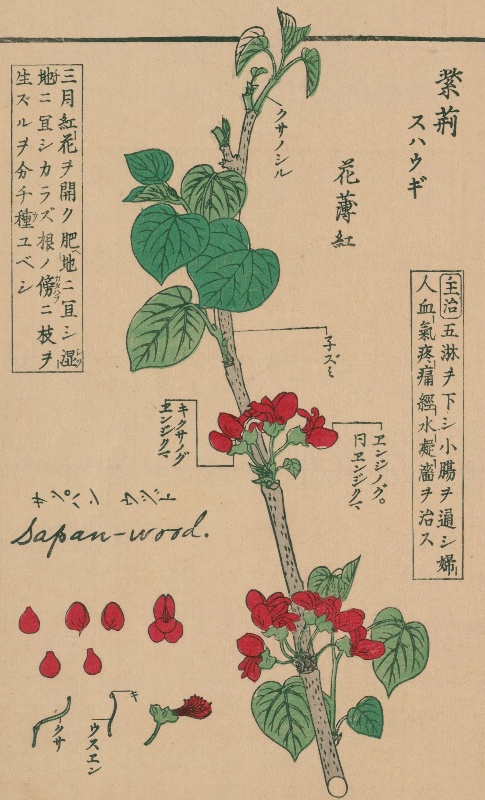 紫荊
スハウギ
花薄紅
主治 五淋ヲ下シ小腸ヲ通シ婦
人血氣疼痛經水凝濇ヲ治ス
クサノシル
子ズミ
ヱンジノグ。
同ヱンジクマ
キクサノグ
ヱンジクマ
三月紅花ヲ開ク肥地ニ宜シ湿
地ニ宜シカラズ根ノ傍ニ枝ヲ
生ズルヲ分チ種ユベシ
サッパン ウード
Sapan-wood.
キ
ウスエン
クサ